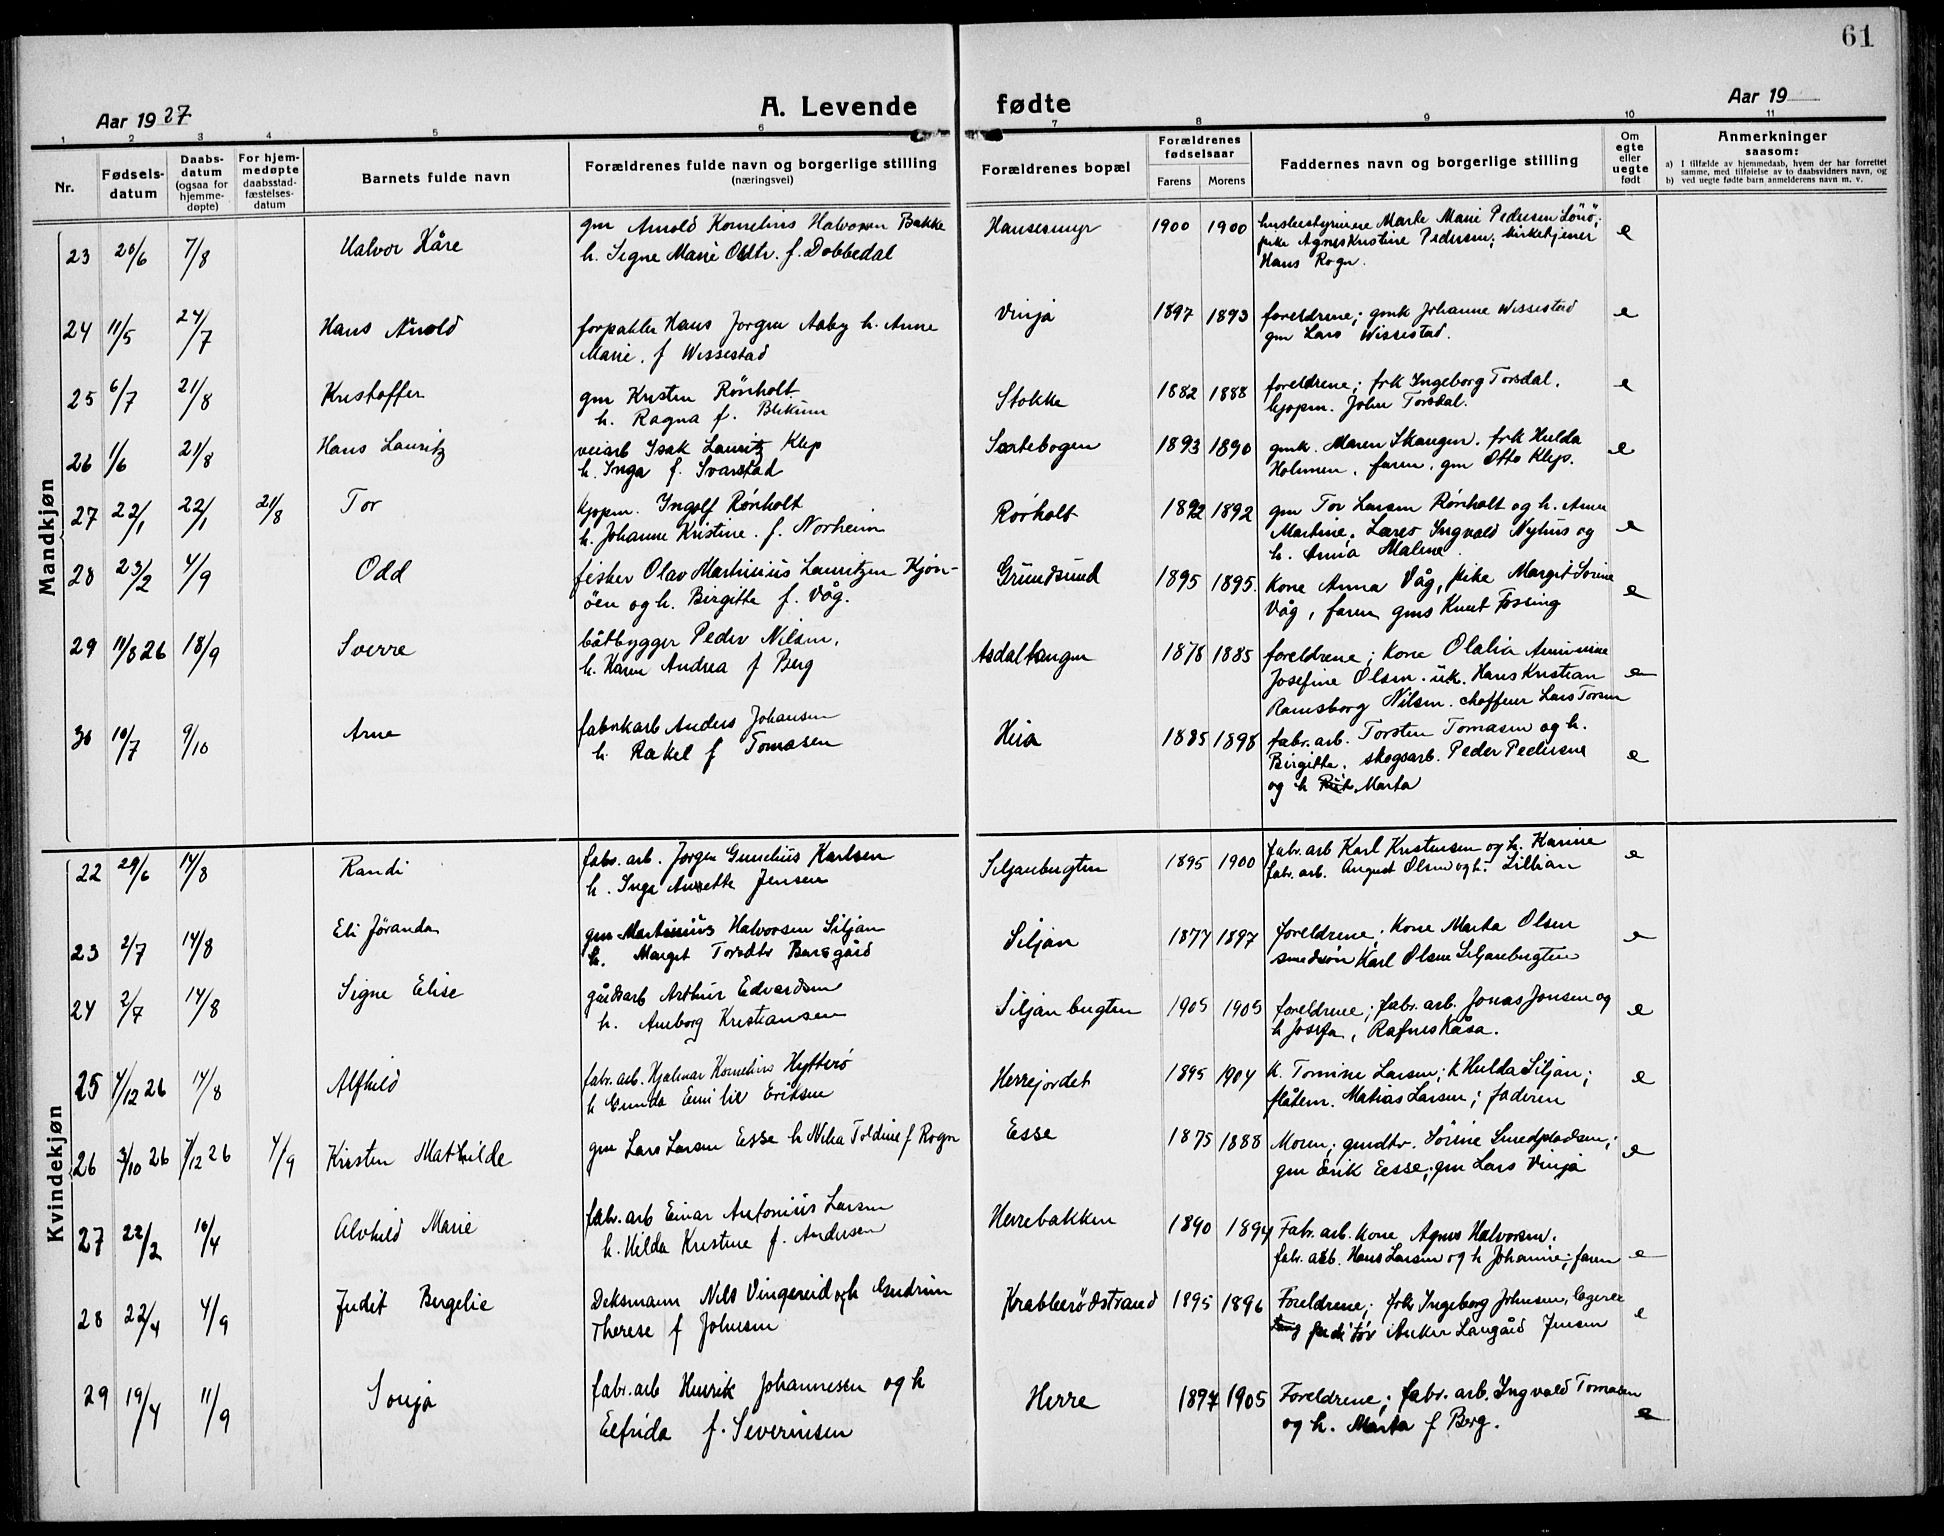 61
Aar 1927 A. Levende fødte Aar 19
1 2 3 4 5 6 7 8 9 10 11
Nr. Fødsels-datum Daabs-datum (ogsaa for hjemme-døpte) For hjem-medøpte daabsstad-fæstelses-datum Barnets fulde navn Forældrenes fulde navn og borgerlige stilling (næringsvei) Forældrenes bopæl Forældrenes fødselsaar Farens Morens Faddernes navn og borgerlige stilling Om egte eller uegte født Anmerkninger saasom:
a) I tilfælde av hjemmedaab, hvem der har forrettet samme, med tilføielse av to daabsvidners navn, og
b) ved uegte fødte barn anmelderens navn m. v.
Mandkjøn
23 20/6 7/8 Halvor Kåre gm Arnold Kornelius Halvorsen Bakke Hansesmyr 1900 1900 husbestyrinne Marte Marie Pedersen Lönö; e
h. Signe Marie Odtr. f. Dobbedal pike Agnes Kristine Pedersen; kirketjener
Hans Rogn.
24 11/5 24/7 Hans Arnold forpakter Hans Jorgen Aaby h. Anne Vinja 1897 1893 foreldrene; gmk Johanne Wissestad e
Marie, f Wissestad gm Lars Wissestad.
25 6/7 21/8 Kristoffer gm Kristen Rönholt Stokke 1882 1888 foreldrene; frk Ingeborg Torsdal, e
h. Ragna f. Blekum kjopm. John Torsdal.
26 1/6 21/8 Hans Lauritz veiarb Isak Lauritz Klep Sartebogen 1893 1890 gmk. Maren Skaugen. frk Hulda e
h. Inga f. Svarstad Holmen, faren, gm Otto Klep.
27 22/1 22/1 21/8 Tor kjopm. Ingolf Rönholt Rörholt 1892 1892 gm Tor Larsen Rönholt og h. Anne e
h. Johanne Kristine f. Norheim Martine, Lars Ingvald Nyhus og
h. Anna Malene.
28 23/2 4/9 Odd fisker Olav Martinius Lauritzen Kjön- Grundsund 1895 1895. Kone Anna Våg, pike Margit Sorine e
öen og h. Birgitte f. Våg. Våg, faren gms Knut Fossing
29 11/8 26 18/9 Sverre båtbygger Peder Nilsen, Asdaltangen 1878 1885 foreldrene; Kone Olalia Arminine e
h. Karen Andrea f Berg Josefine Olsen. uk. Hans Kristian
Ramsborg Nilsen. chaffeur Lars Torsen
30 10/7 9/10 Arne fabrikarb Anders Johansen Heia 1885 1898 fabr. arb. Torsten Tomasen og h. e
h. Rakel f Tomasen Birgitte, skogsarb. Peder Pedersene
og h Marta
Kvindekjøn
22 29/6 14/8 Randi fabr. arb. Jorgen Gunelius Karlsen Siljanbugten 1895 1900 fabr. arb Karl Kristensen og h. Karine e
h. Inga Annette Jensen fabr. arb. August Olsen og h. Lillian
23 2/7 14/8 Eli Jöranda gm Martinius Halvorsen Siljan Siljan 1877 1897 foreldrene; Kone Marta Olsen e
h. Marget Torsdtr Barsgård smedsön Karl Olsen Siljanbugten
24 2/7 14/8 Signe Elise gårdsarb Arthur Edvardsen Siljanbugten 1905 1905 foreldrene; fabr. arb. Jonas Jonsen og e
h. Amborg Kristiansen h Josefa, Rafnes Kåsa.
25 4/12 26 14/8 Alfhild fabr. arb. Hjalmar Kornelius Hytterö Herrejordet 1895 1904 K. Tomine Larsen; k Hulda Siljan; e
h Gunda Emilie Eriksen flåtem. Matias Larsen; faderen
26 3/10 26 7/12 26 4/9 Kristen Mathilde gm Lars Larsen Eesse h Nilia Toldine f Rogn Eesse 1875 1888 Moren; gmdtr. Sörine Smedpladsen; e
gm Erik Eesse, gm Lars Vinja
27 22/2 10/4 Alvhild Marie fabr. arb Einar Antonius Larsen Herrebakken 1890 1894 Fabr. arb. kone Agnes Halvorsen. e
h. Hilda Kristine f. Andersen fabr. arb. Hans Larsen og h Johanne; faren
28 22/4 4/9 Judit Bergelie Deksmann Nils Vingereid og h Gudrun Krabberödstrand 1895 1896 Foreldrene; frk Ingeborg Johnsen, e
Therese f Johnsen Anker Langård Jensen
29 19/4 11/9 Sonja fabr. arb Henrik Johannesen og h Herre 1897 1905 Foreldrene; fabr. arb. Ingvald Tomasen e
Elfrida f. Severinsen og h. Marta f Berg.